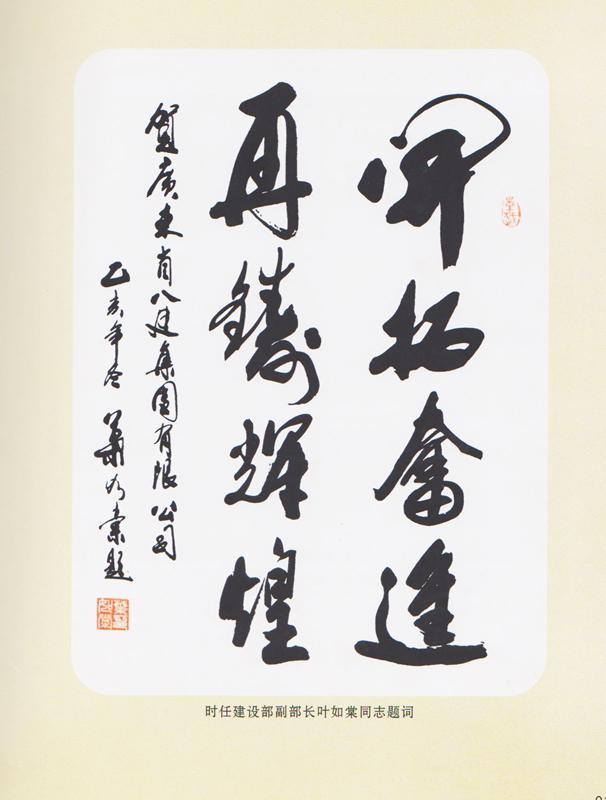 開拓奮進
再鑄輝煌
賀廣東省八建集團有限公司
乙亥年冬 葉如棠題
时任建设部副部长叶如棠同志题词